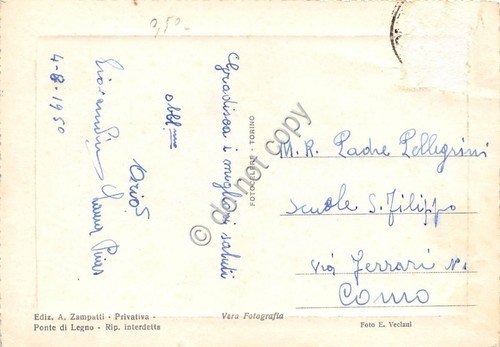 0,50-
Gradisca i migliori saluti
obbl.mo
4-8-1950
FOTOCELERE - TORINO
M. R. Padre Pellegrini
Scuole S. Filippo
Via Ferrari N. 1
COMO
Ediz. A. Zampatti - Privativa -
Ponte di Legno - Rip. interdetta
Vera Fotografia
Foto E. Veclani
© do not copy